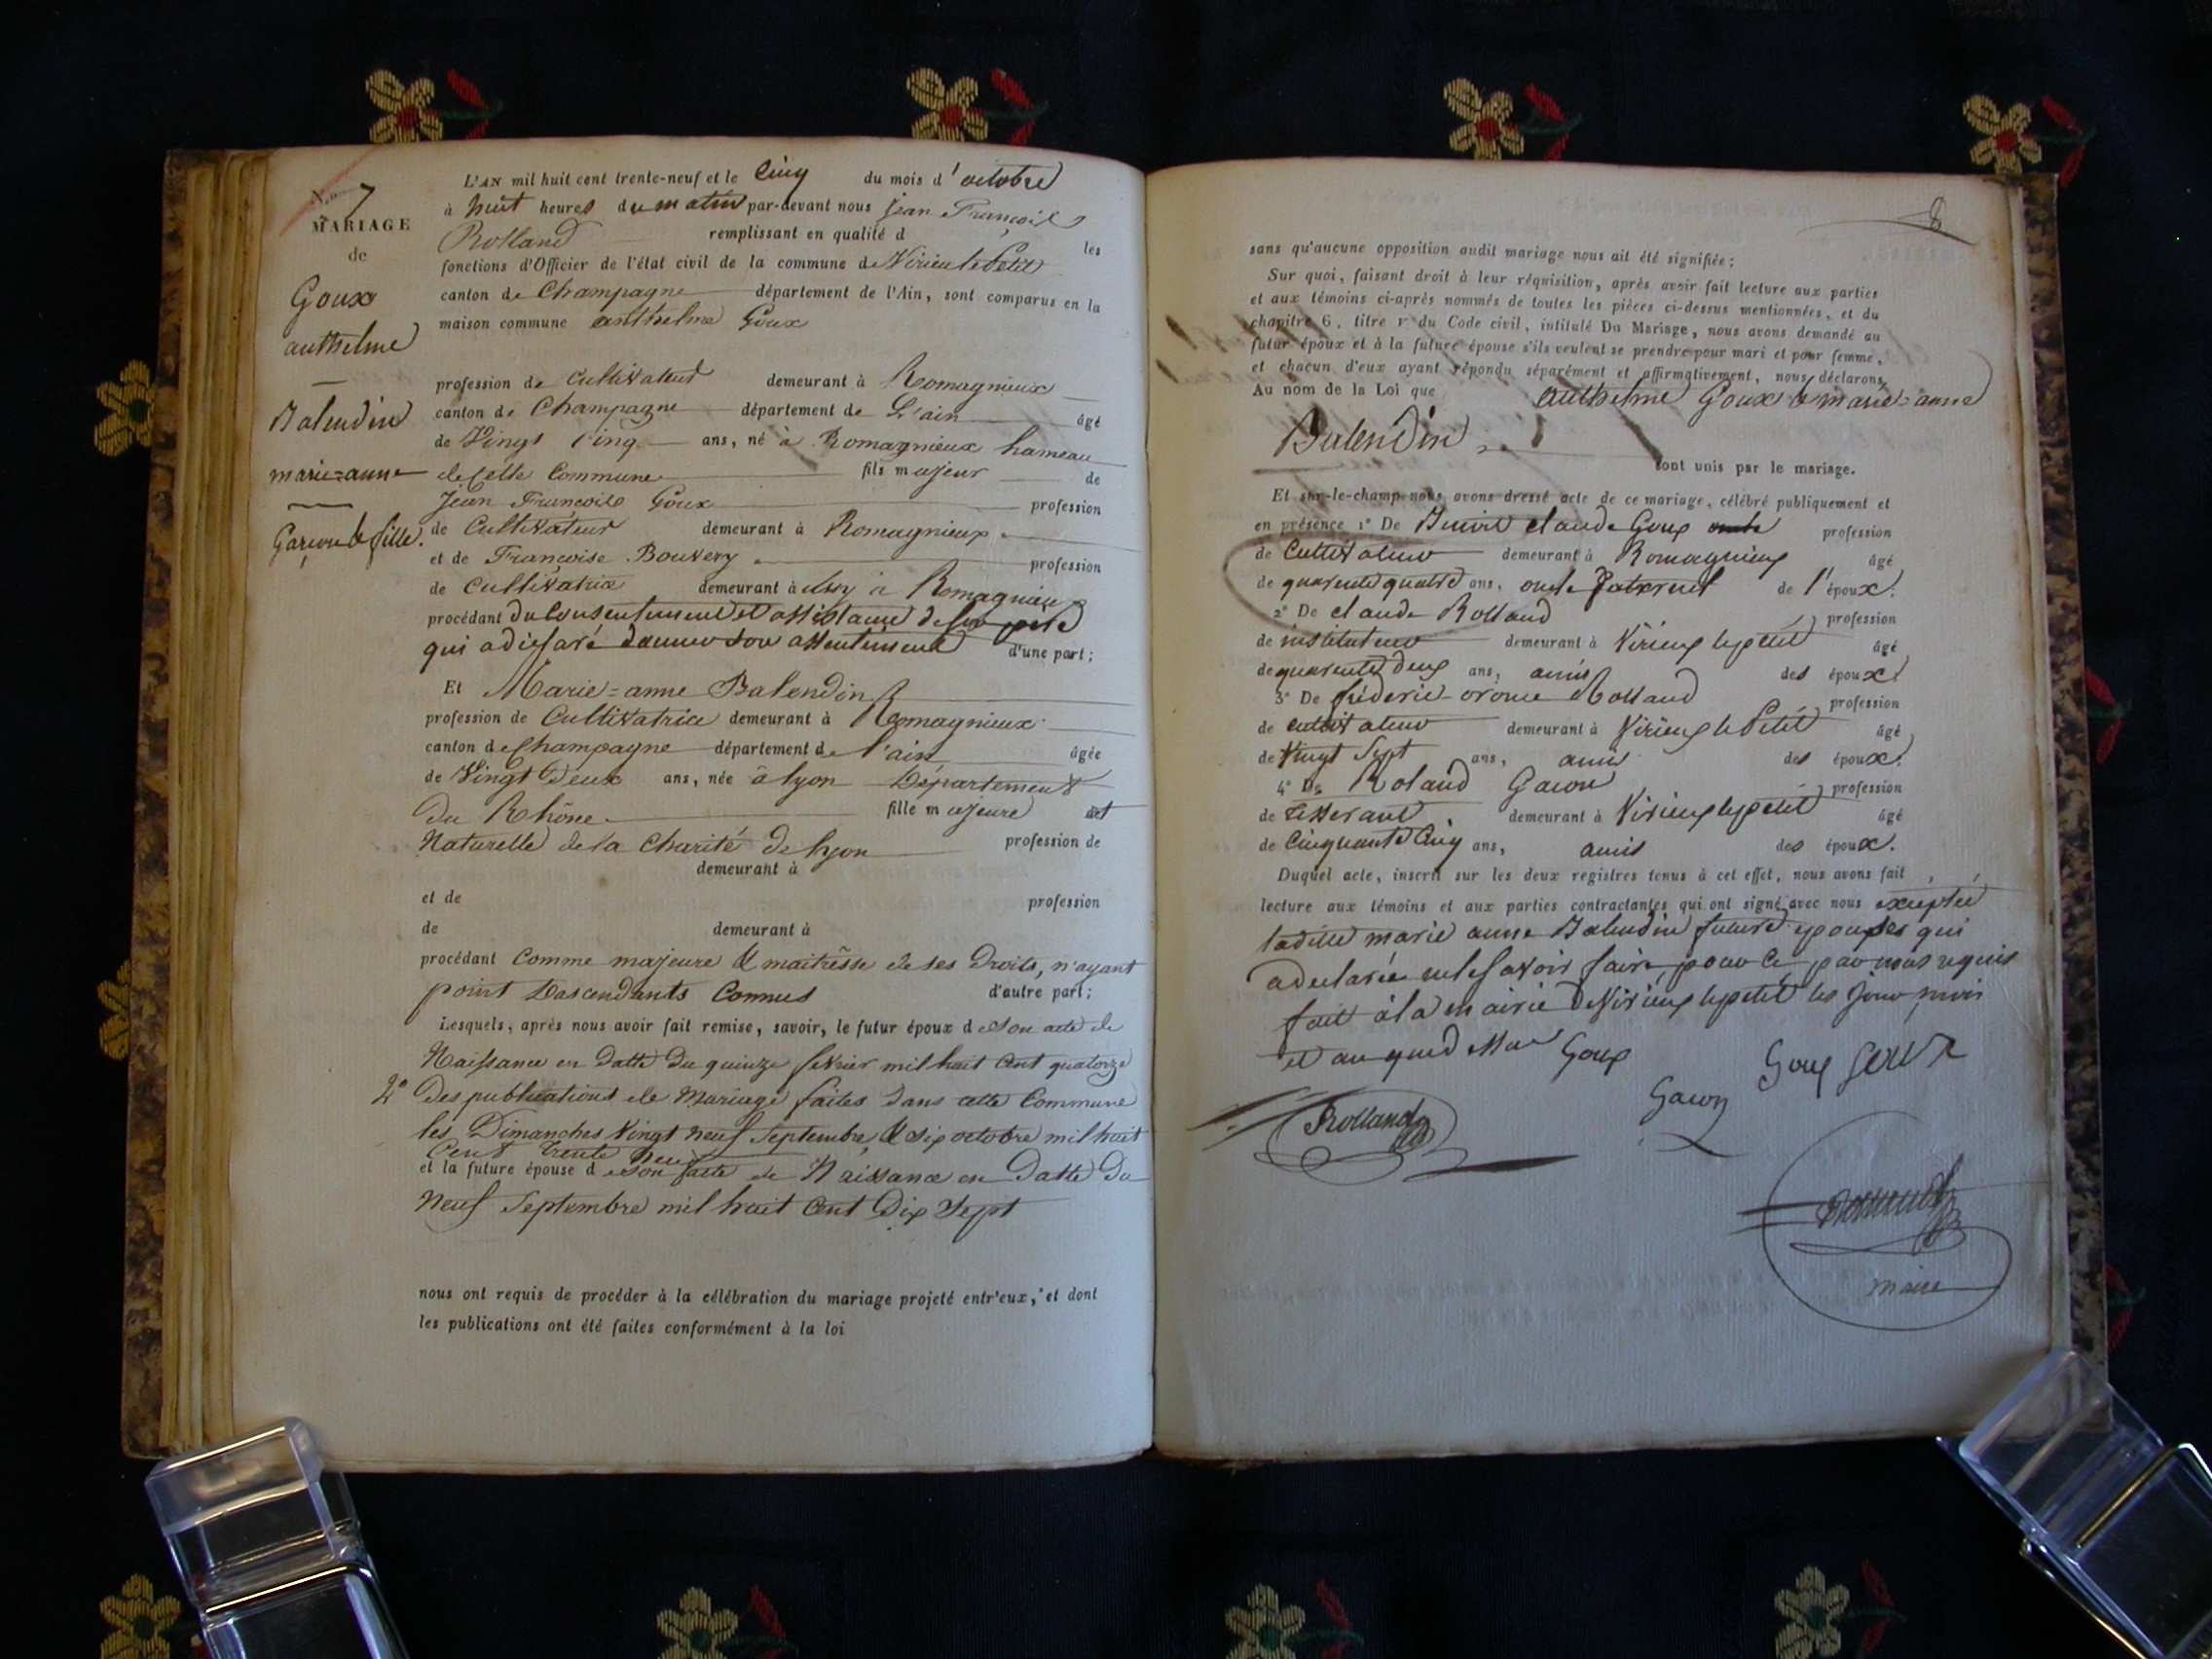 N.o 7
MARIAGE
de
Goux
anthelme
Balendin
marie=anne
Garçon & fille.
L'AN mil huit cent trente-neuf et le Cinq du mois d'octobre
à huit heures du matin par-devant nous Jean François
Rolland remplissant en qualité d les
fonctions d'Officier de l'état civil de la commune de Virieu le Petit
canton de Champagne département de l'Ain, sont comparus en la
maison commune anthelme Goux
profession de Cultivateur demeurant à Romagnieux
canton de Champagne département de L'ain âgé
de Vingt Cinq ans, né à Romagnieux hameau
de Cette Commune fils majeur de
Jean François Goux profession
de Cultivateur demeurant à Romagnieux
et de Françoise Bouvery profession
de Cultivatrice demeurant à aussy à Romagnieux
procédant du Consentement et assistance de son père
qui a déclaré donner son assentiment d'une part;
Et Marie=anne Balendin
profession de Cultivatrice demeurant à Romagnieux
canton de Champagne département de l'ain âgée
de Vingt Deux ans, née à lyon Département
du Rhône fille majeure et
Naturelle de la Charité de lyon profession de
demeurant à
et de profession
de demeurant à
procédant Comme majeure & maitresse de ses Droits, n'ayant
point Dascendants Connus d'autre part;
Lesquels, après nous avoir fait remise, savoir, le futur époux de son acte de
Naissance en datte du quinze fevrier mil huit Cent quatorze
2° Des publications de Mariage faites dans cette Commune
les Dimanches Vingt neuf Septembre & six octobre mil huit
Cent trente neuf
et la future épouse de son acte de Naissance en Datte du
neuf Septembre mil huit Cent Dix Sept
nous ont requis de procéder à la célébration du mariage projeté entr'eux, et dont
les publications ont été faites conformément à la loi
8
sans qu'aucune opposition audit mariage nous ait été signifiée;
Sur quoi, faisant droit à leur réquisition, après avoir fait lecture aux parties
et aux témoins ci-après nommés de toutes les pièces ci-dessus mentionnées, et du
chapitre 6, titre v du Code civil, intitulé Du Mariage, nous avons demandé au
futur époux et à la future épouse s'ils veulent se prendre pour mari et pour femme,
et chacun d'eux ayant répondu séparément et affirmativement, nous déclarons
Au nom de la Loi que anthelme Goux & marie=anne
Balendin
sont unis par le mariage.
Et sur-le-champ nous avons dressé acte de ce mariage, célébré publiquement et
en présence 1° De Benoit claude Goux profession
de Cultivateur demeurant à Romagnieux âgé
de quarente quatre ans, oncle Paternel de l'époux.
2° De claude Rolland profession
de instituteur demeurant à Virieux le petit âgé
de quarente deux ans, amis des époux.
3° De fréderic Rolland profession
de cultivateur demeurant à Virieux le Petit âgé
de Vingt Sept ans, amis des époux.
4° De Roland Gacon profession
de Tisserant demeurant à Virieux le petit âgé
de Cinquante Cinq ans, amis des époux.
Duquel acte, inscrit sur les deux registres tenus à cet effet, nous avons fait
lecture aux témoins et aux parties contractantes qui ont signé avec nous exeptée
ladille marie anne Balendin future epouse qui
a declarée ne le savoir faire, pour ce par nous requis
fait à la mairie de Virieux le petit les jour mois
et an que dessus Goux
Goux Goux
Gacon
Rolland
maire